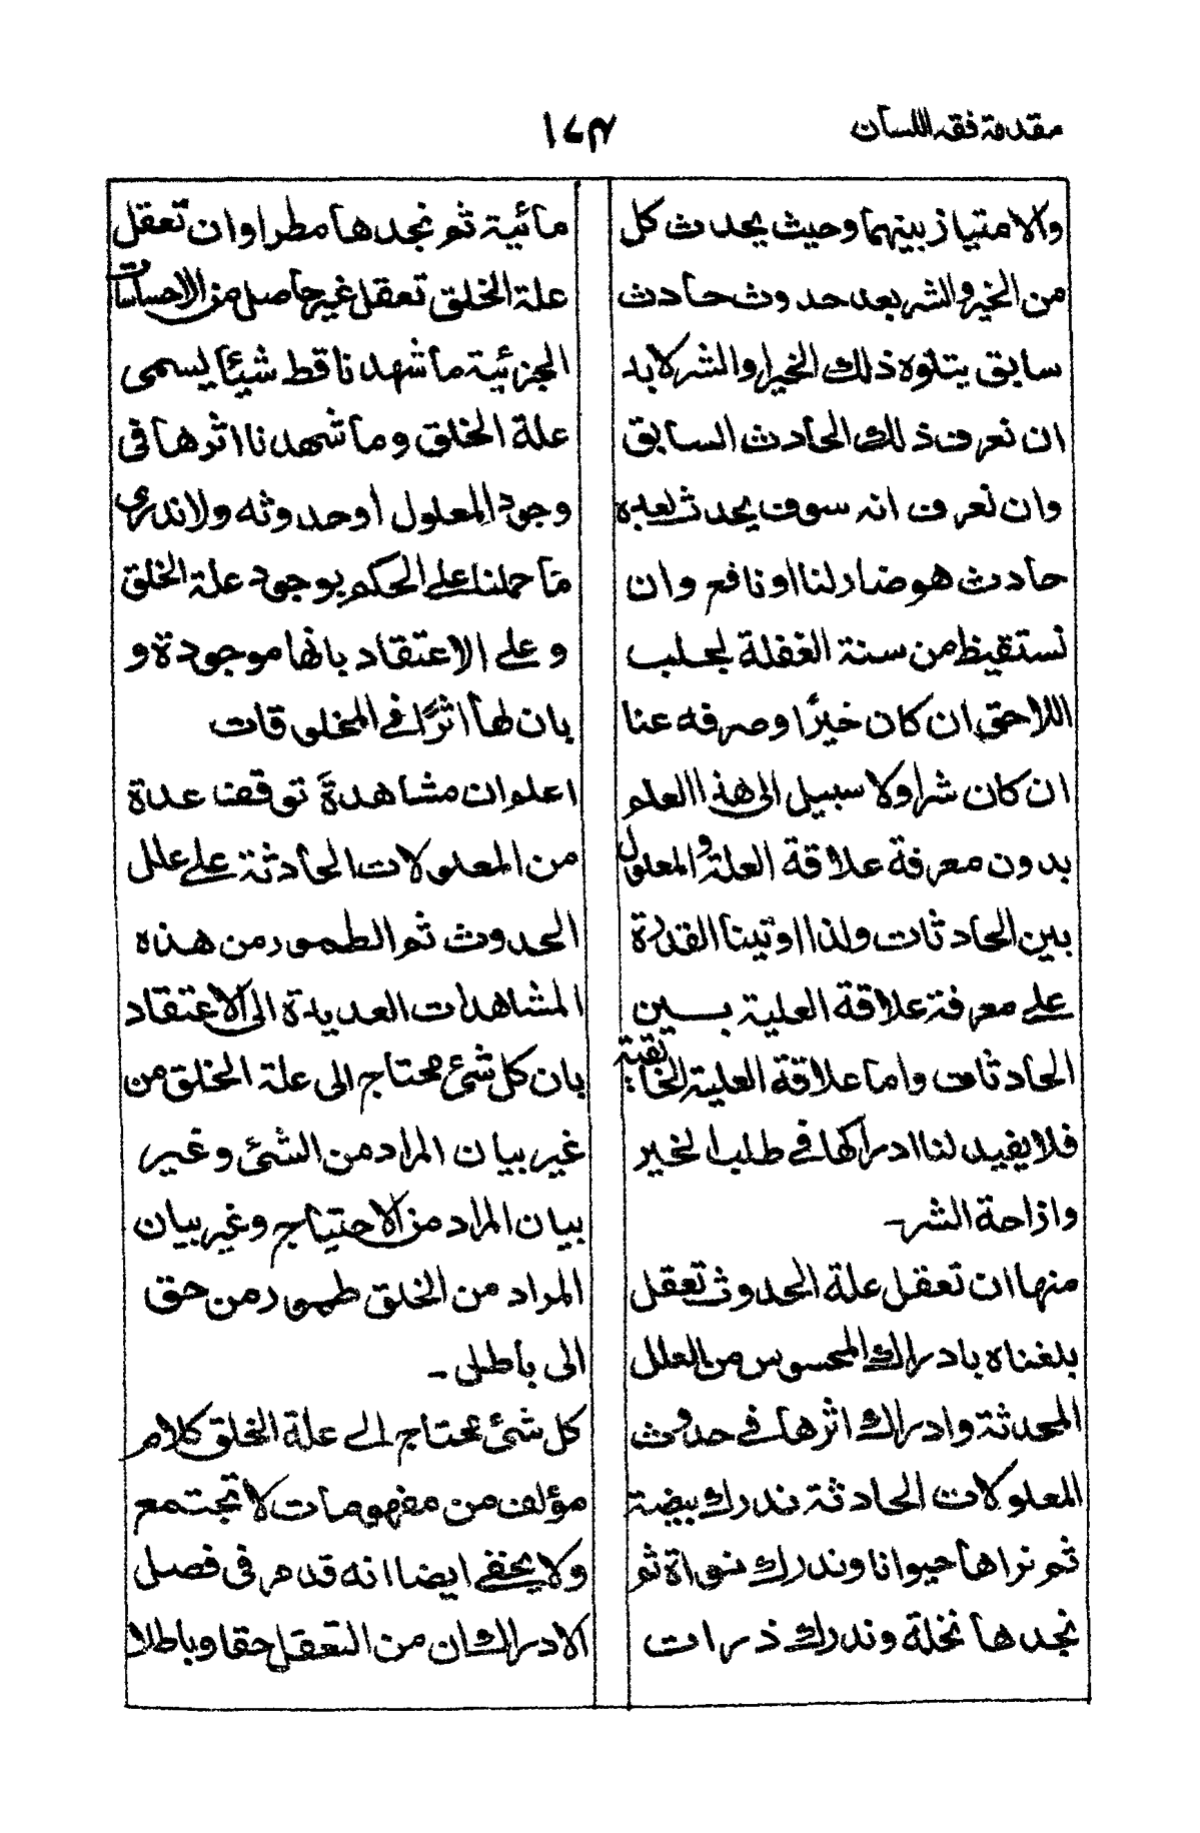 مقدمة فقه اللسان
١٧٣
والامتياز بينهما وحيث يحدث كل
من الخير والشر بعد حدوث حادث
سابق يتلوه ذلك الخير او الشر لابد
ان نعرف ذلك الحادث السابق
وان نعرف انه سوف يحدث بعده
حادث هو ضار لنا او نافع وان
نستقيظ من سنة الغفلة لجلب
اللاحق ان كان خيرًا وصرفه عنا
ان كان شرا ولا سبيل الى هذا العلم
بدون معرفة علاقة العلة والمعلول
بين الحادثات ولذا اوتينا القدرة
على معرفة علاقة العلية بسين
الحادثات واما علاقة العلية الخالقية
فلا يفيد لنا ادراكها فى طلب الخير
وازاحة الشر-
منها ان تعقل علة الحدوث تعقل
بلغناه بادراك المحسوس من العلل
المحدثة وادراك اثرها فى حدوث
المعلولات الحادثة ندرك بيضة
ثم نراها حيوانا وندرك نواة ثم
نجدها نخلة وندرك ذرات
مائية ثم نجدها مطرا وان تعقل
علة الخلق تعقل غير حاصل من الاحساسات
الجزئية ما شهدنا قط شيئا يسمى
علة الخلق وما شهدنا اثرها فى
وجود المعلول أو حدوثه ولا ندرى
ما حملنا على الحكم بوجود علة الخلق
وعلى الاعتقاد بانها موجودة و
بان لها اثرًا فى المخلوقات
اعلم ان مشاهدة توقف عدة
من المعلولات الحادثة على علل
الحدوث ثم الطمور من هذه
المشاهدات العديدة الى الاعتقاد
بان كل شئ محتاج الى علة الخلق من
غير بيان المراد من الشئ وغير
بيان المراد من الاحتياج وغير بيان
المراد من الخلق طمور من حق
الى باطل -
كل شئ محتاج الى علة الخلق كلام
مؤلف من مفهومات لا تجتمع
ولا يخفى ايضا انه قد مر فى فصل
الادراك ان من التعقل حقا وباطلا